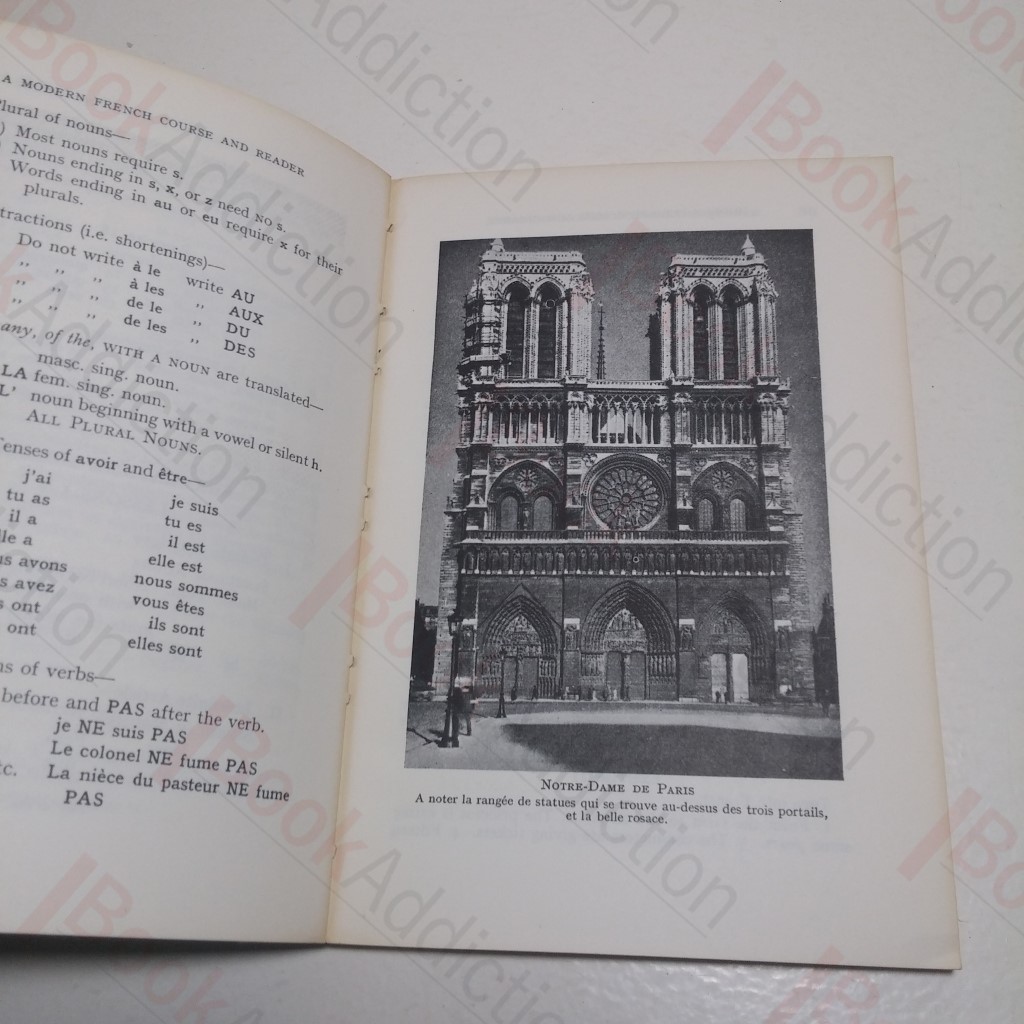 A MODERN FRENCH COURSE AND READER
Plural of nouns—
) Most nouns require s.
) Nouns ending in s, x, or z need NO s.
Words ending in au or eu require x for their
plurals.
tractions (i.e. shortenings)—
Do not write à le write AU
,, ,, ,, à les ,, AUX
,, ,, ,, de le ,, DU
,, ,, ,, de les ,, DES
any, of the, WITH A NOUN are translated—
masc. sing. noun.
LA fem. sing. noun.
L' noun beginning with a vowel or silent h.
ALL PLURAL NOUNS.
Tenses of avoir and être—
j'ai je suis
tu as tu es
il a il est
lle a elle est
us avons nous sommes
s avez vous êtes
s ont ils sont
ont elles sont
ns of verbs—
before and PAS after the verb.
je NE suis PAS
Le colonel NE fume PAS
tc. La nièce du pasteur NE fume
PAS
NOTRE-DAME DE PARIS
A noter la rangée de statues qui se trouve au-dessus des trois portails,
et la belle rosace.
BookAddiction